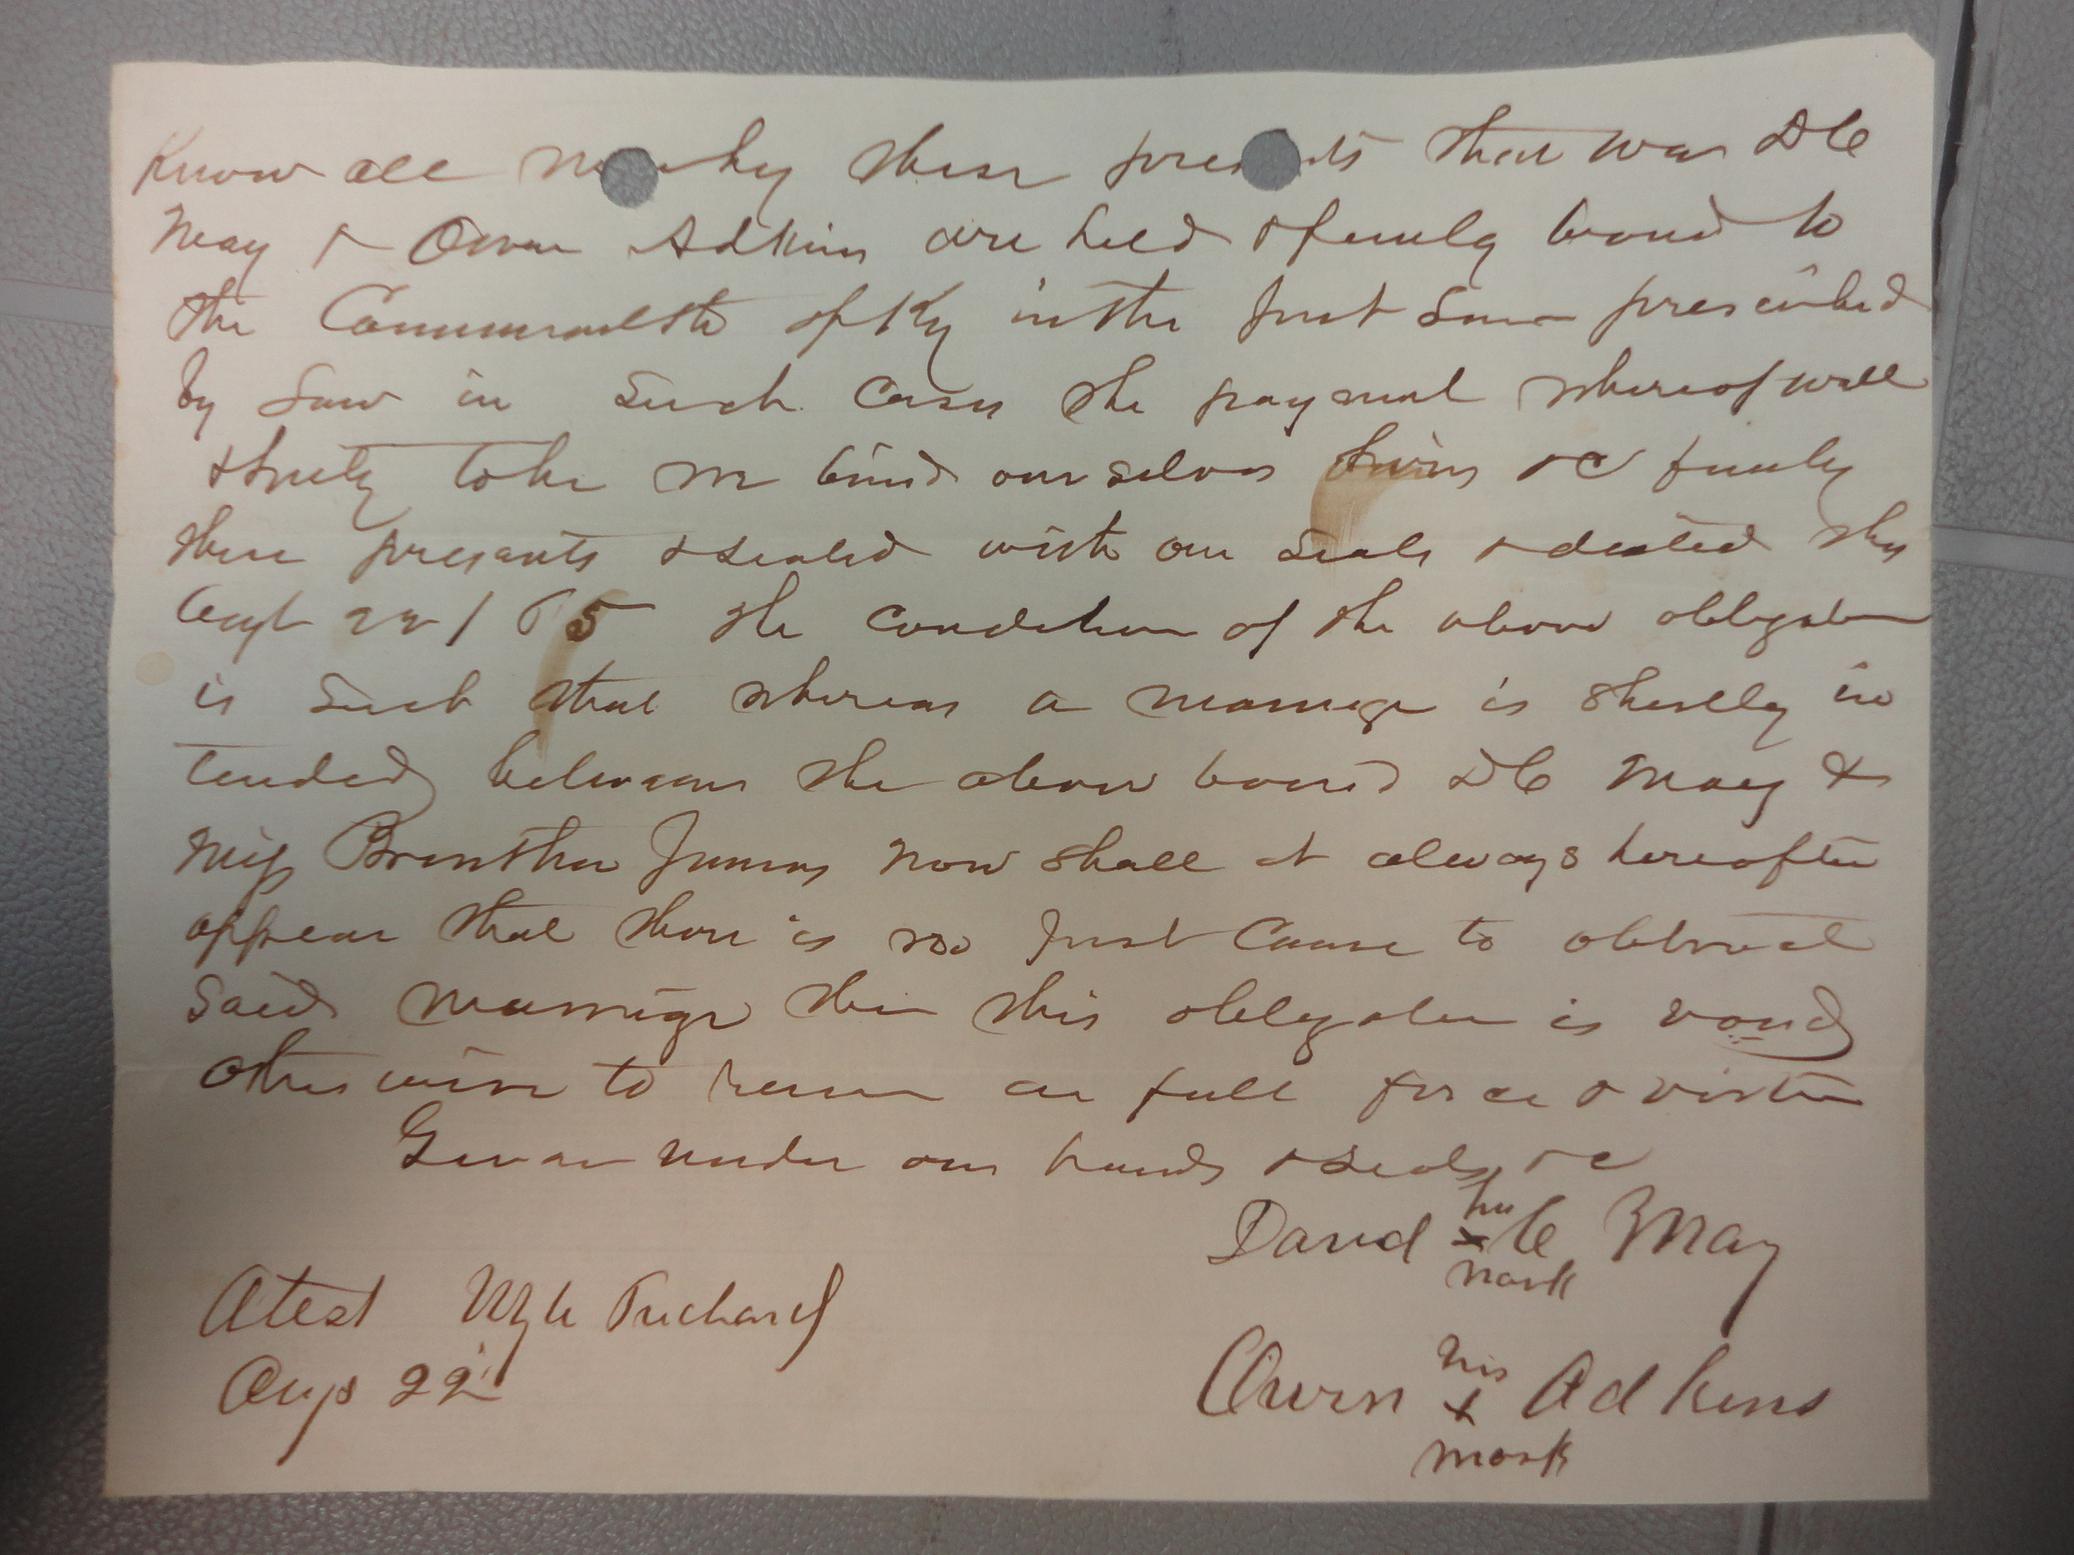 Know all m by these pres ts that we D C
May & Owen Adkins are held & firmly bound to
the Commonwelth of Ky in the Just Sum prescribed
by Law in such Cases the payment whereof well
& truly to be we bind ourselves heirs &C firmly
these presants & sealed with our Seals & dated this
Augt 22 / 5 the condition of the above obligation
is such that whereas a marriage is shortly in
tended between the above bound D C May &
Miss now shall it always hereafter
appear that there is no Just Cause to obstruct
said marriage then this obligation is void
other wise to remain in full force & virtue
Given under our hands & seals &c
his
David x C May
mark
Atest Prichard
Aug 22
his
Owen x Adkins
mark